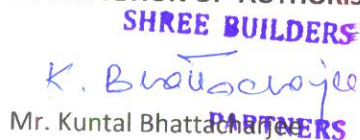 OF AUTHORIS
SHREE BUILDERS
K. Bhattacharjee
Mr. Kuntal Bhattacharjee
PARTNERS